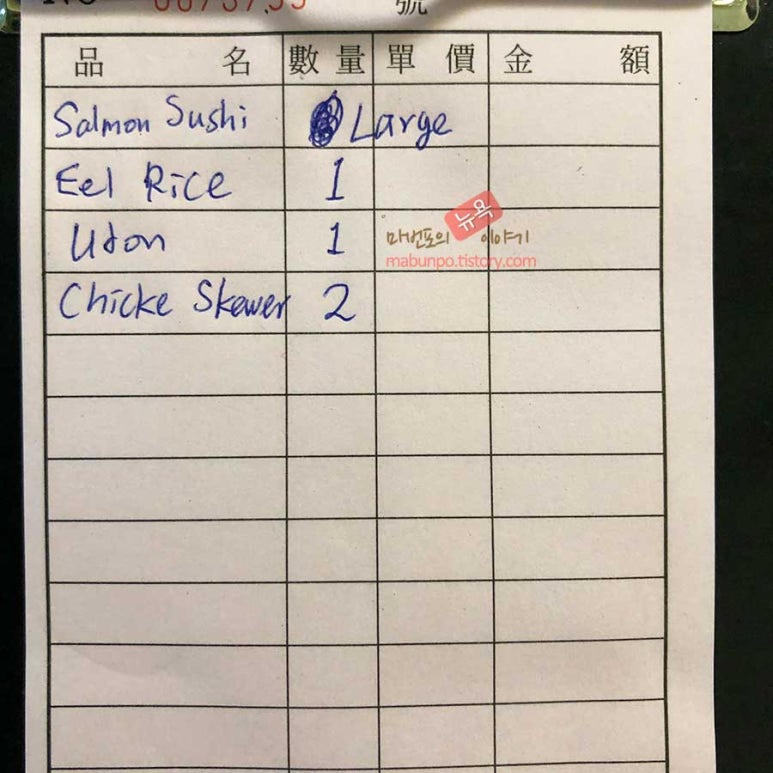 號
品 名 數量 單價 金 額
Salmon Sushi Large
Eel Rice 1
Udon 1
Chicke Skewer 2
뉴욕
마번포의 이야기
mabunpo.tistory.com